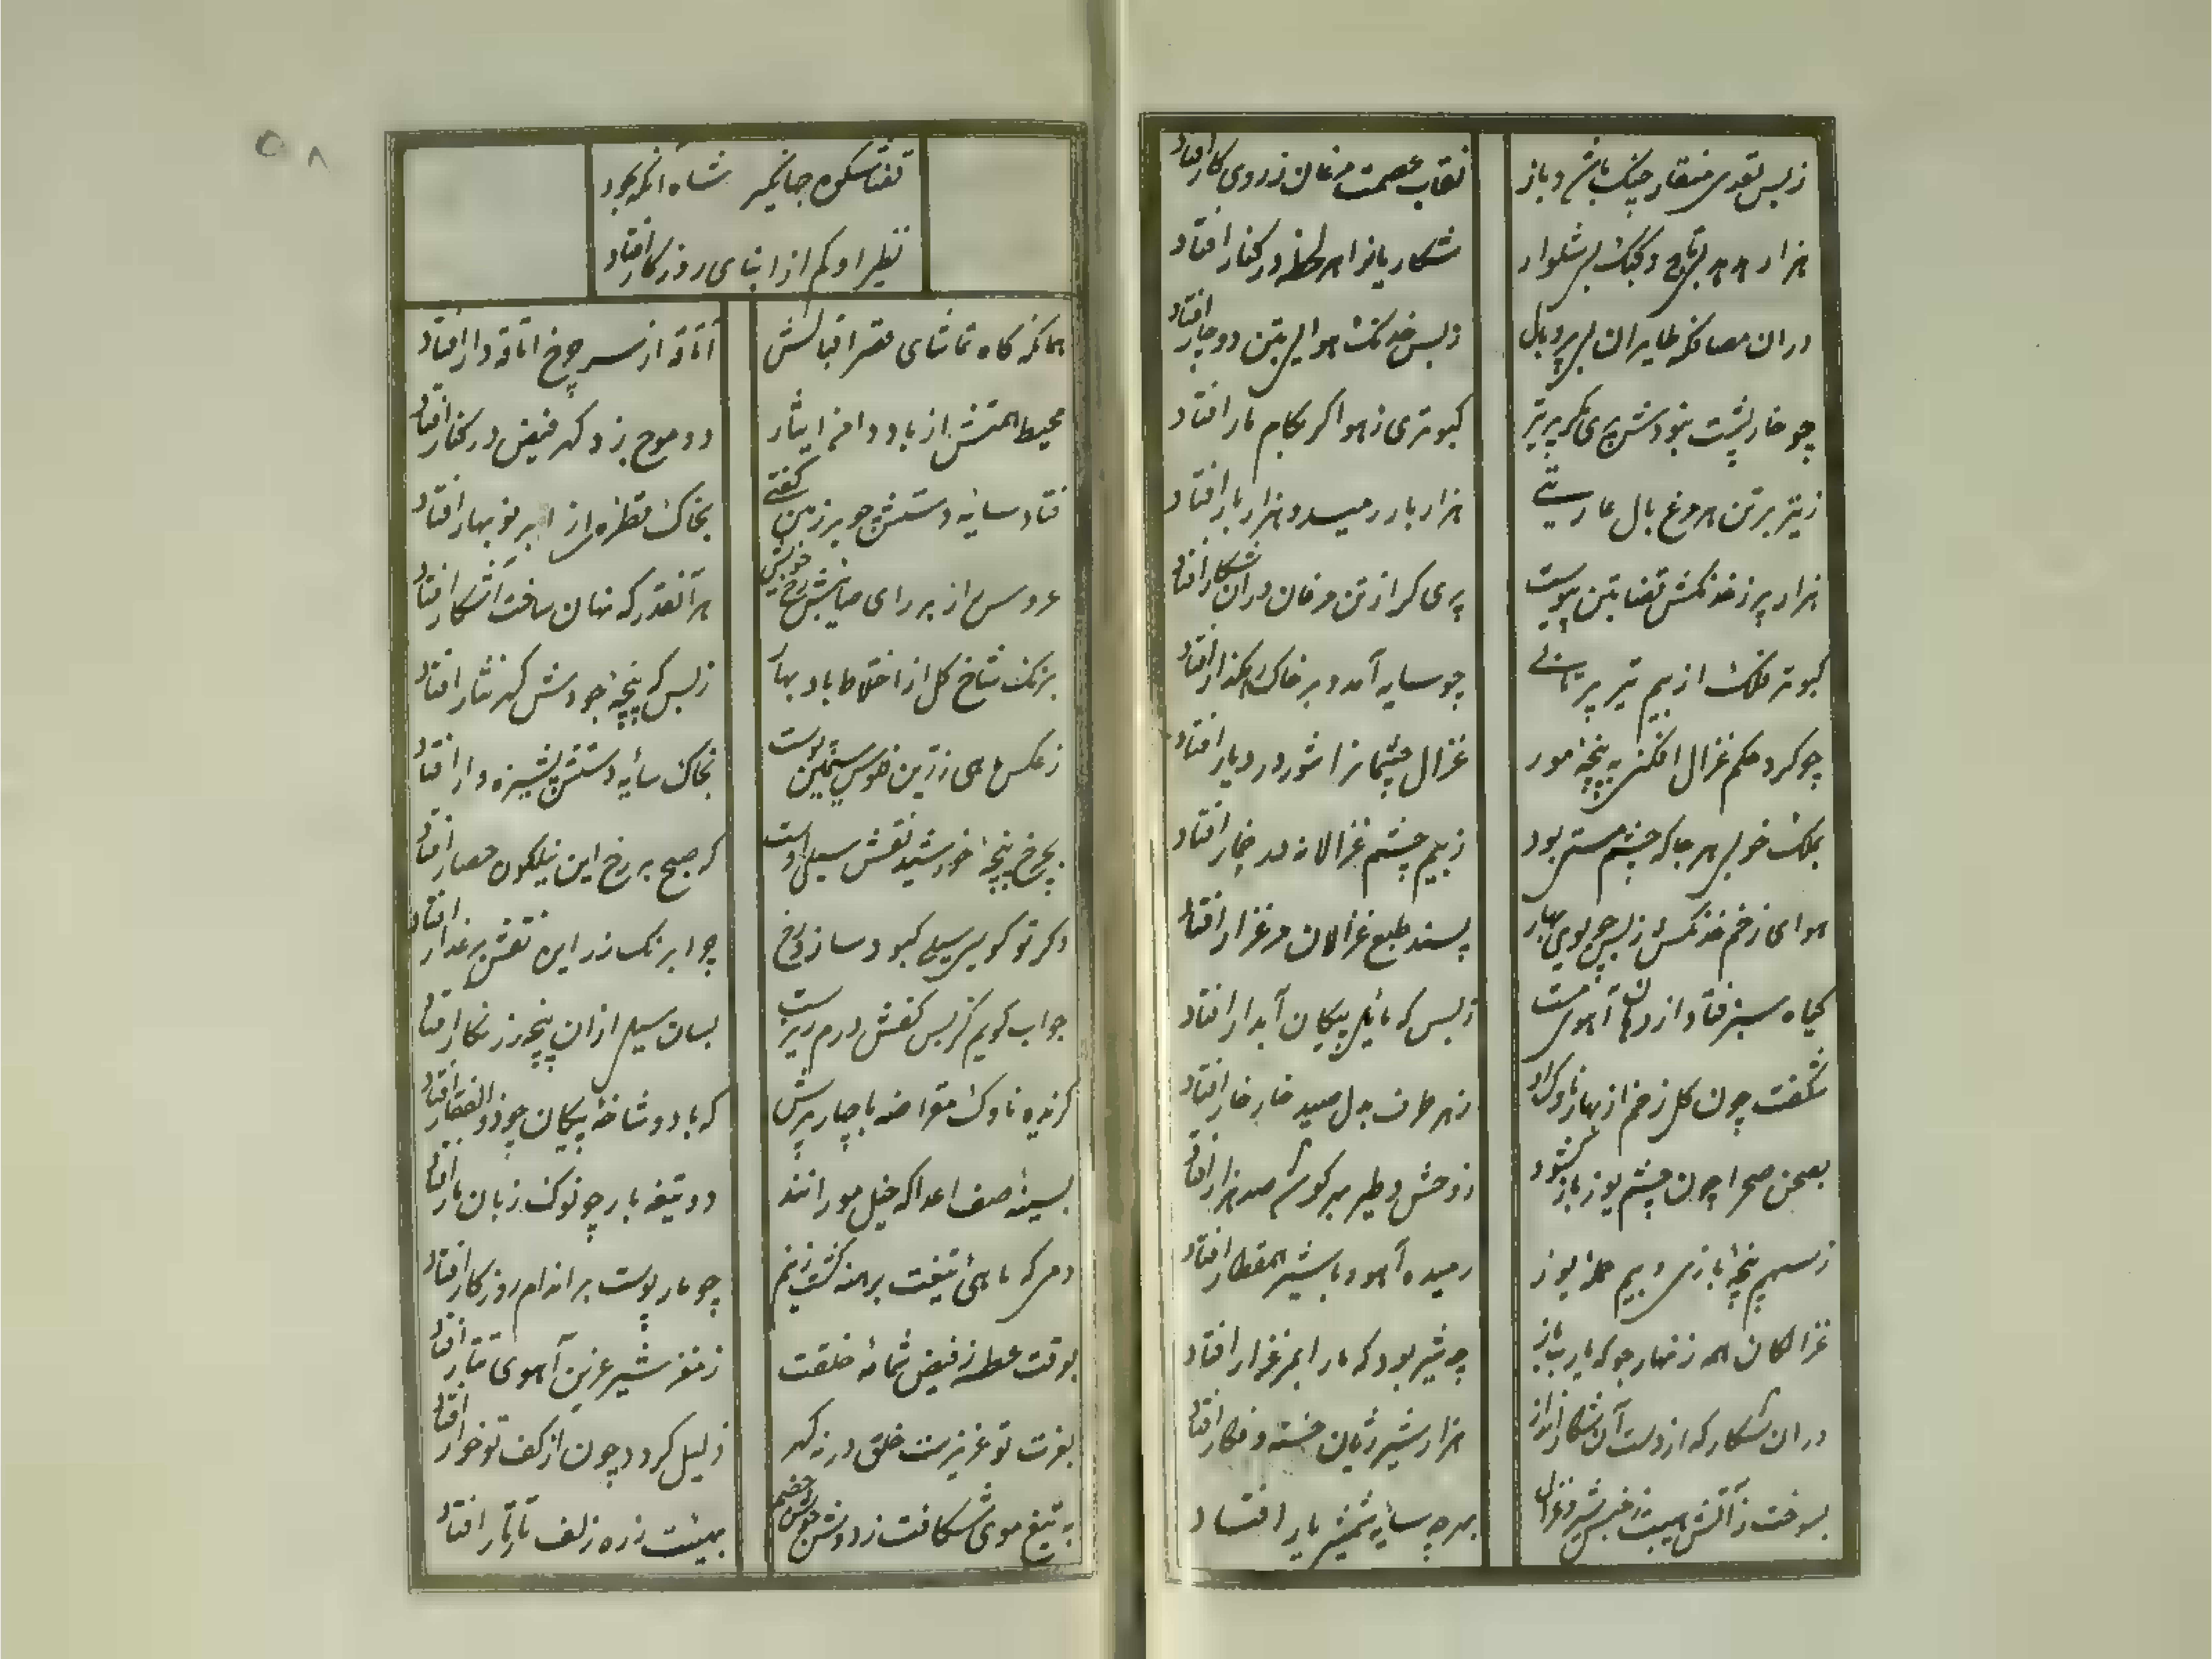 زبس تعدی منقار چنک باشه و باز
نقاب عصمت مرغان ز روی کار افتاد
هزار هدهد بی تاج و کبک بی شلوار
شکاریانرا هر لحظه در کنار افتاد
دران معامله طایران بی پر و بال
زبس خدنک هوایی بتن دوچار افتاد
چو خارپشت نبودش پری مکر پر تیر
کبوتری ز هوا کر بکام مار افتاد
ز تیر بر تن هر مرغ بال عاریتی
هزار بار رمید و هزار بار افتاد
هزار پر ز خدنکش قضا بتن پیوست
پری کر از تن مرغان دران شکار افتاد
کبوتر فلک از بیم تیر پرتابی
چو سایه آمد و بر خاک رهکذار افتاد
چو کرد حکم غزال افکنی به پنجه مور
غزال چشمانرا شور در دیار افتاد
بملک خوبی هر جا که چشم مستی بود
ز بیم چشم غزالانه در خمار افتاد
هوای زخم خدنکش ز بس چو بوی بهار
پسند طبع غزالان مرغزار افتاد
کیاه سبز فتاد از دهان آهوی مست
زبس که مایل پیکان آبدار افتاد
شکفت چون کل زخم از بهار ناوک او
ز هر طرف بدل صید خار خار افتاد
بصحن صحرا چون چشم یوز باز کشود
ز وحش و طیر بهر کوشه صد هزار افتاد
ز سهم پنجه باز و بیم حمله یوز
رمیده آهو و با شیر هم قطار افتاد
غزالکان همه زنهار جو که یا رب باز
چه شیر بود که ما را بمرغزار افتاد
دران شکار که از دست آن شکار انداز
هزار شیر ژیان خسته و فکار افتاد
بسوخت ز آتش هیبت ز جنس شیر و غزال
بهر چه سایه شمشیر یار افتاد
قضا شکوه جهانکیر شاه انکه بجود
نظیر او کم از ابنای روزکار افتاد
همانکه کاه تماشای قصر اقبالش
اتاقه از سر چرخ اتاقه دار افتاد
محیط همتش از باد دامن ایثار
دو موج بر زد کهر فیض در کنار افتاد
فتاد سایه دستش چو بر زمین کفتی
بخاک قطره‌ای از ابر نوبهار افتاد
عروس راز بر رای ضیابخش رخ خویش
هر آنقدر که نهان ساخت آشکار افتاد
برنک شاخ کل از اختلاط باد بهار
زبس که پنجه جودش کهر نثار افتاد
ز عکس ماهی زرین فلوس سیمین پوست
بخاک سایه دستش پشیزه دار افتاد
بچرخ پنجه خورشید نقش سیلی اوست
که صبح بر رخ این نیلکون حصار افتاد
وکر تو کویی سیلی کبود سازد رخ
چرا برنک زر این نقش بر عذار افتاد
جواب کویم کز بس کفش درم ریزست
بسان سیلی ازان پنجه زرنکار افتاد
کزیده ناوک مقراضه با چار پرش
که با دو شاخه پیکان چو ذوالفقار افتاد
بسینه صف اعدا که خیل مورانند
دو تیغه بار چو نوک زبان مار افتاد
دمی که ماهی تیغت برهنه کشت برزم
چو مار پوست بر اندام روزکار افتاد
بوقت عطسه ز فیض شمامه خلقت
ز مغز شیر عرین آهوی تتار افتاد
بعزت تو عزیزست خلق ورنه کهر
ذلیل کردد چون از کف تو خوار افتاد
به تیغ موی شکافت ز دوش جوشن خصم
بهیئت زره زلف تارتار افتاد